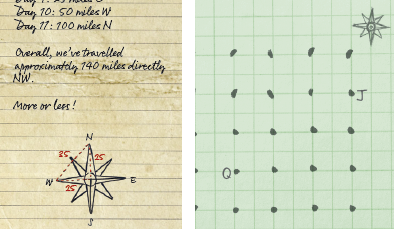 Day 10: 50 miles W
Day 17: 100 miles N
Overall, we've travelled
approximately 140 miles directly
NW.
More or less!
N
35
25
W
E
25
S
J
Q